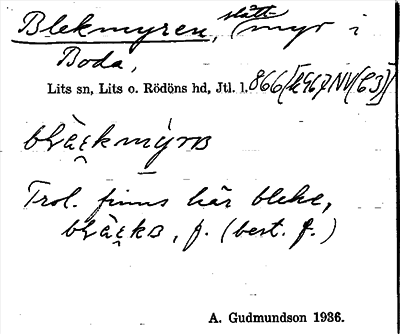 Blekmyren, (slått-
myr i
Boda,
Lits sn, Lits o. Rödöns hd, Jtl. l. 866 [R967NV(63)]
Trol. finns här bleke,
f. (best. f.)
A. Gudmundson 1936.